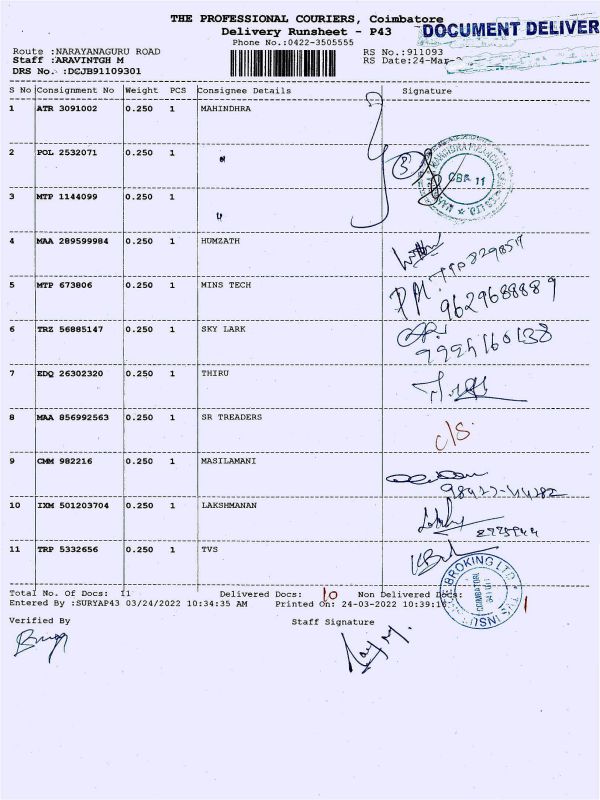 THE PROFESSIONAL COURIERS, Coimbatore
Delivery Runsheet - P43
DOCUMENT DELIVER
Phone No.:0422-3505555
Route :NARAYANAGURU ROAD
RS No.:911093
Staff :ARAVINTGH M
RS Date:24-Mar-
DRS No. :DCJB91109301
S No Consignment No Weight PCS Consignee Details Signature
1 ATR 3091002 0.250 1 MAHINDHRA
2 POL 2532071 0.250 1 "
3 MTP 1144099 0.250 1 "
3
CBE 11
4 MAA 289599984 0.250 1 HUMZATH
5 MTP 673806 0.250 1 MINS TECH
9629688889
6 TRZ 56885147 0.250 1 SKY LARK
7 EDQ 26302320 0.250 1 THIRU
8 MAA 856992563 0.250 1 SR TREADERS c/s.
9 CMM 982216 0.250 1 MASILAMANI
10 IXM 501203704 0.250 1 LAKSHMANAN
11 TRP 5332656 0.250 1 TVS
BROKING LTD
COIMBATORE
Total No. of Docs: 11 Delivered Docs: 10 Non Delivered Docs: 1
Entered By :SURYAP43 03/24/2022 10:34:35 AM Printed On: 24-03-2022 10:39:16
Verified By Staff Signature